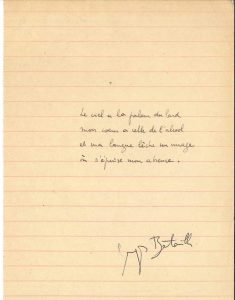 Le ciel a la pâleur du lard
mon cœur a celle de l'alcool
et ma langue lèche un nuage
où s'épuise mon absence.
Georges Bataille